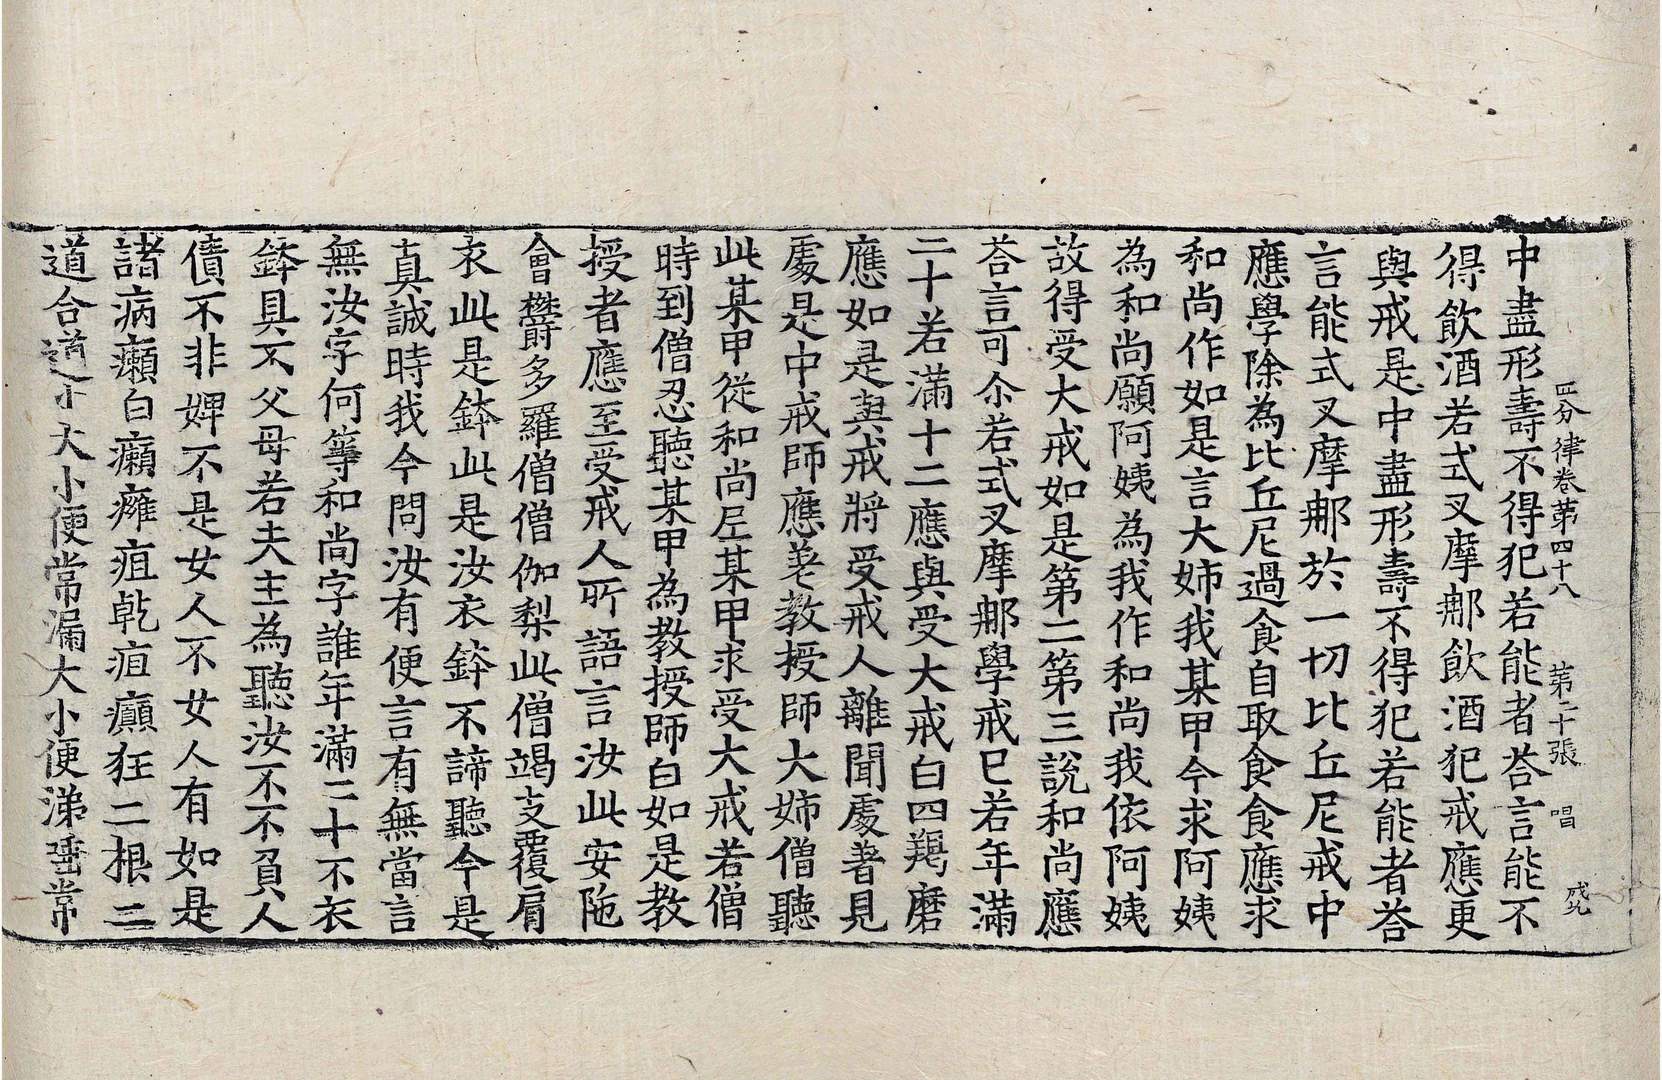 四分律卷第四十八 第二十張 唱 戌九
中盡形壽不得犯若能者荅言能不
得飲酒若式叉摩那飲酒犯戒應更
與戒是中盡形壽不得犯若能者荅
言能式叉摩那於一切比丘尼戒中
應學除為比丘尼過食自取食食應求
和尚作如是言大姊我某甲今求阿姨
為和尚願阿姨為我作和尚我依阿姨
故得受大戒如是第二第三說和尚應
荅言可尒若式叉摩那學戒已若年滿
二十若滿十二應與受大戒白四羯磨
應如是與戒將受戒人離聞處著見
處是中戒師應差教授師大姊僧聽
此某甲從和尚尼某甲求受大戒若僧
時到僧忍聽某甲為教授師白如是教
授者應至受戒人所語言汝此安陁
會欝多羅僧僧伽梨此僧竭支覆肩
衣此是鉢此是汝衣鉢不諦聽今是
真誠時我今問汝有便言有無當言
無汝字何等和尚字誰年滿二十不衣
鉢具不父母若夫主為聽汝不不負人
債不非婢不是女人不女人有如是
諸病癩白癩癰疽乾疽癲狂二根二
道合道小大小便常漏大小便涕唾常